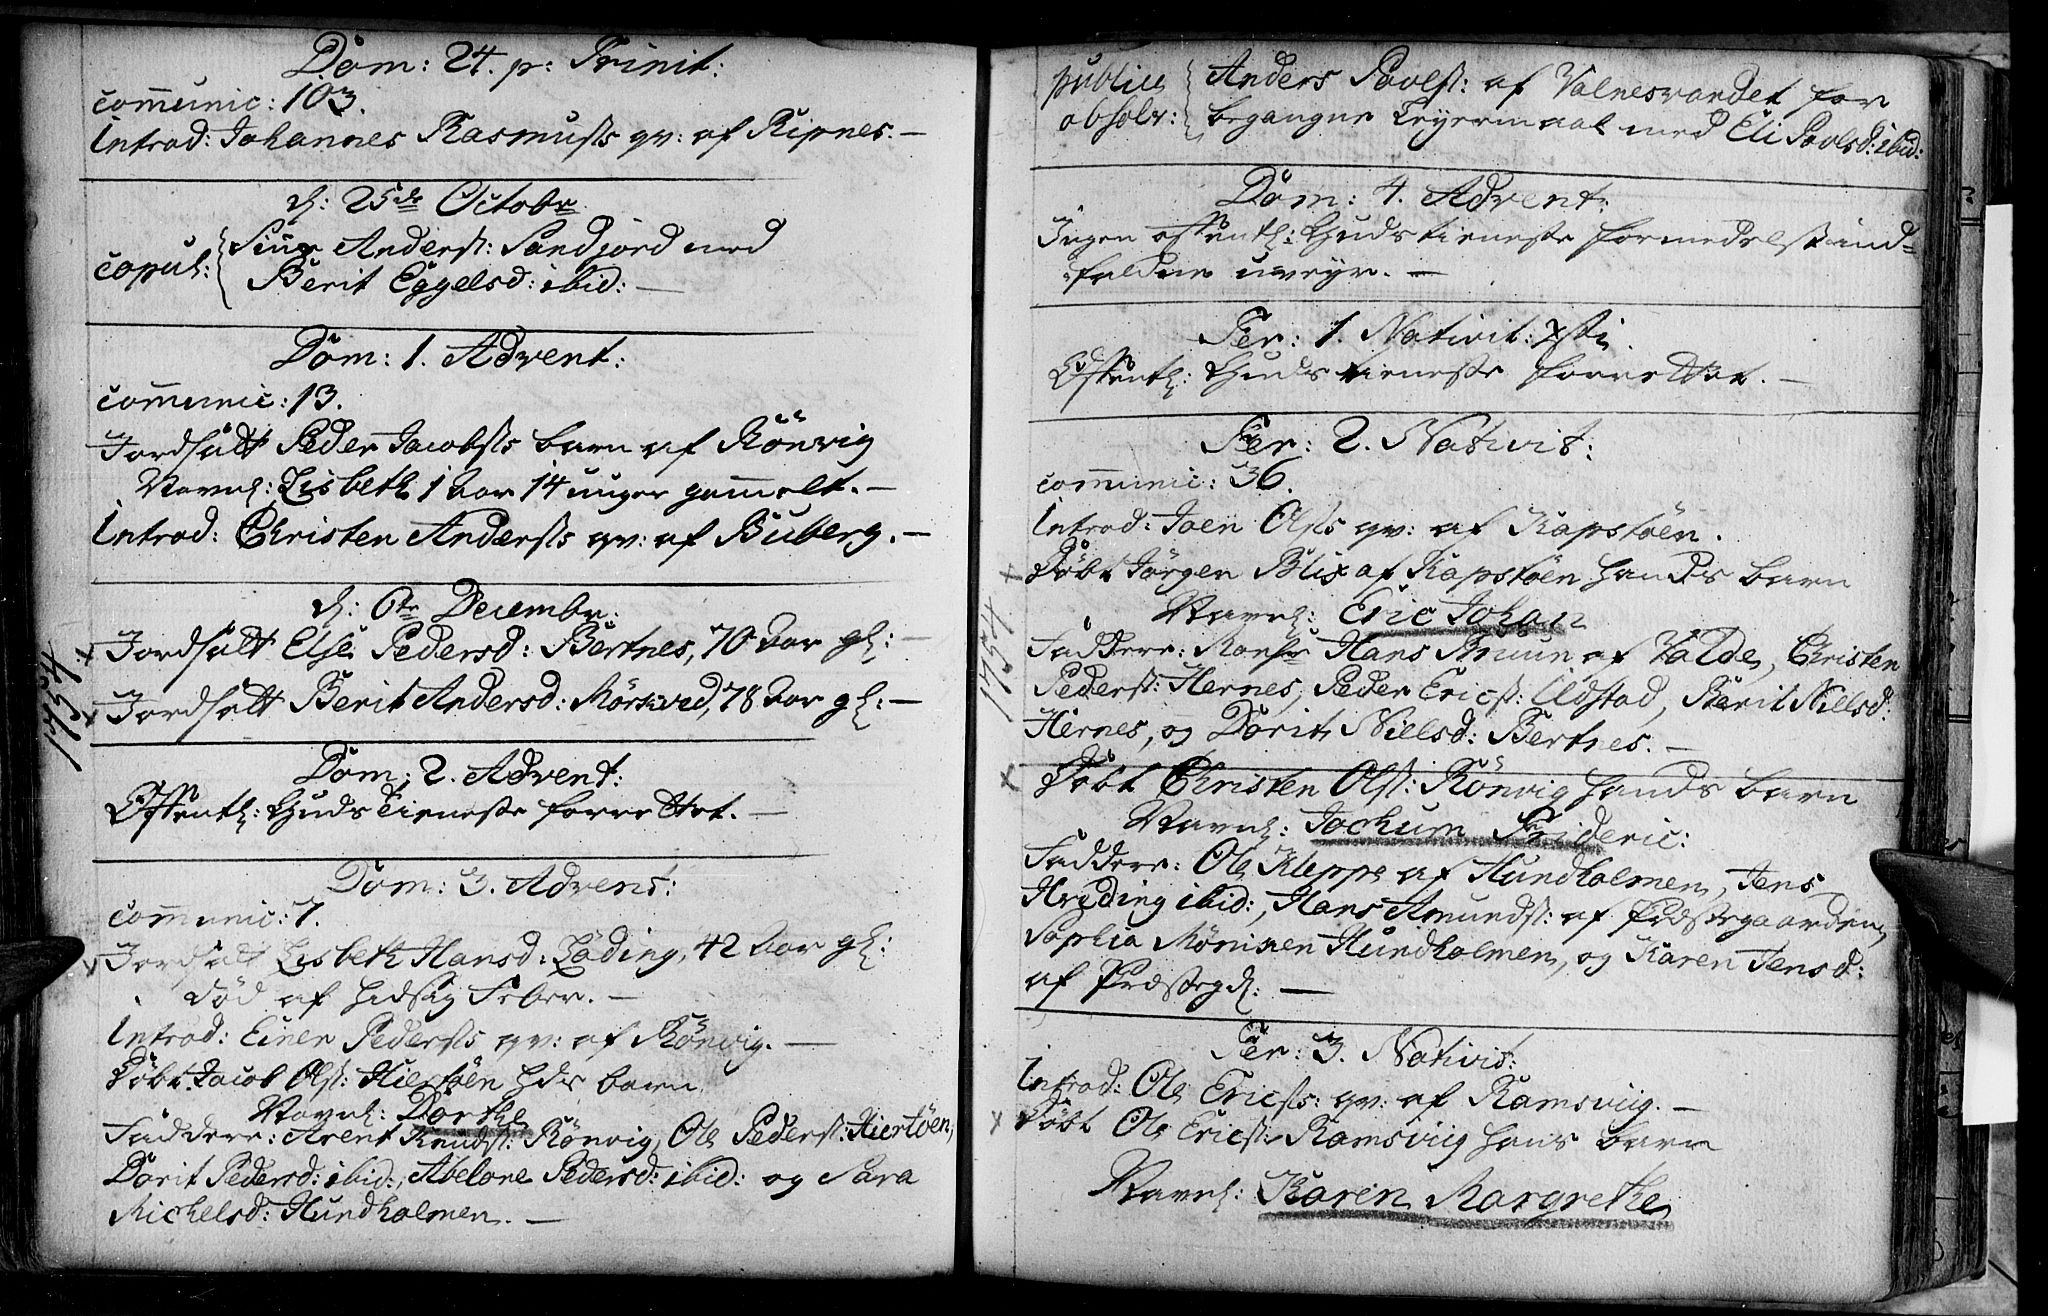 Dom: 24. p: Trinit:
communic: 103.
Introd: Johannes Rasmusss qv: af Ripnes. —
d: 25de Octobr
copul: Siur Anderss: Sandjord med
Berit Eggelsd: ibid: —
Dom: 1. Advent:
communic: 13.
Jordfült Peder Jacobsss barn af Rönvig
Navnl: Lisbeth 1 aar 14 uuger gammelt. —
Introd: Christen Andersss qv: af Buberg. —
d: 6te Decembr:
Jordfült Else Pedersd: Bertnes, 70 aar gl: —
Jordfült Berit Andersd: Mörkved, 78 aar gl: —
1754
Dom: 2. Advent:
Offentl: Guds Tieneste forrettet. —
Dom: 3. Advent:
communic: 7.
Jordfült Lisbeth Hansd: Löding, 42 aar gl:
død af hidsig Feber. —
Introd: Einer Pedersss qv: af Rönvig. —
Döbt Jacob Olss: Hiertöen hds barn
Navnl: Dorthe
Faddere: Arent Knudss: Rönvig, Ole Peders: Hiertöen,
Dorit Pedersd: ibid:, Abelone Pedersd: ibid: og Sara
Michelsd: Hundholmen. —
publice absolv: Anders Povelss: af Valnesvandet for
begangne Leyermaal med Eli Povlsd: ibid:
Dom: 4. Advent:
Ingen offentl: Guds tieneste formedelst ind-
faldne uveyr. —
Fer: 1. Nativit: Xsti
Offentl: Guds tieneste forrettet. —
Fer: 2. Nativit:
communic: 36.
Introd: Joen Olsss qv: af Kapstöen.
Döbt Jörgen Blix af Kapstöen hands barn
Navnl: Eric Johan
1754
Faddere: Monsr Hans Bruun af Valde, Christen
Pederss: Hernes, Peder Ericss: Alstad, Berit Nillsd:
Hernes, og Dorit Nielsd: Bertnes. —
Döbt Christen Olss: Rönvig hands barn
Navnl: Jochum Frideric:
Faddere: Ole Kleppe af Hundholmen, Jens
Hveding ibid:, Hans Amundss: af Præstegaarden,
Sophia Mönichen Hundholmen, og Karen Jensd:
af Præstegd: —
Fer: 3. Nativit:
Introd: Ole Ericsss: qv: af Ramsviig. —
Döbt Ole Ericss: Ramsviig hans barn
Navnl: Karen Margrethe